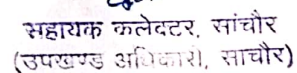 सहायक कलेक्टर, सांचौर
(उपखण्ड अधिकारी, साचौर)